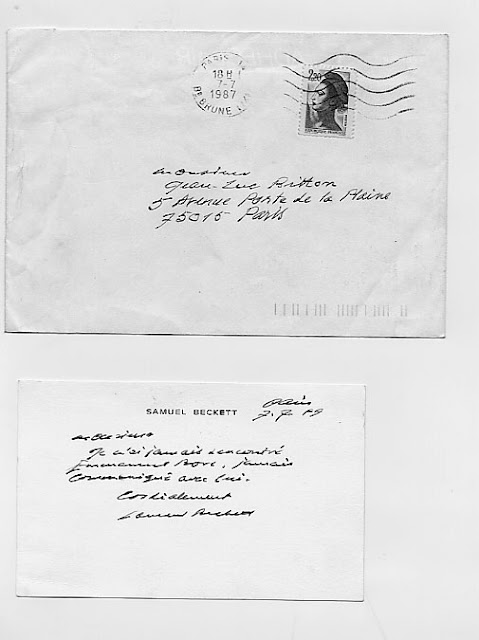 PARIS
18 H
7-7
1987
Bd BRUNE
2,20
Monsieur
Jean-Luc Bitton
5 Avenue Porte de la Plaine
75015 Paris
SAMUEL BECKETT
Paris
7.7
Monsieur
Je n'ai jamais rencontré
Emmanuel Bove, jamais
communiqué avec lui.
Cordialement
Samuel Beckett